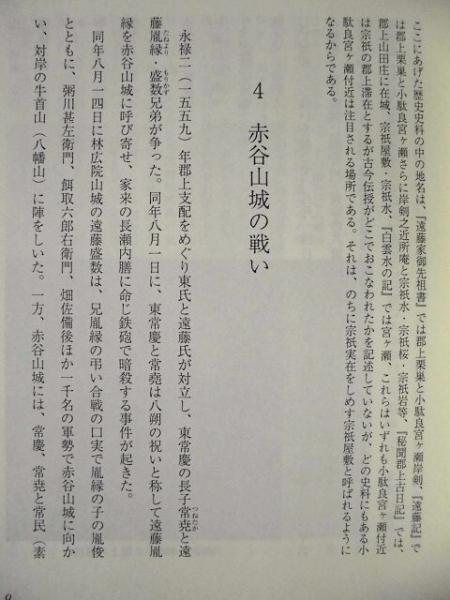 ここにあげた歴史史料の中の地名は、『遠藤家御先祖書』では郡上栗巣と小駄良宮ヶ瀬岸剣、『遠藤記』で
は郡上栗巣と小駄良宮ヶ瀬さらに岸剣之近所庵と宗祇水・宗祇桜・宗祇岩等、『秘聞郡上古日記』では、
郡上山田庄に在城、宗祇屋敷・宗祇水、『白雲水の記』では宮ヶ瀬、これらはいずれも小駄良宮ヶ瀬付近
は宗祇の郡上滞在とするが古今伝授がどこでおこなわれたかを記述していないが、どの史料にもある小
駄良宮ヶ瀬付近は注目される場所である。それは、のちに宗祇実在をしめす宗祇屋敷と呼ばれるように
なるからである。
4 赤谷山城の戦い
永禄二（一五五九）年郡上支配をめぐり東氏と遠藤氏が対立し、東常慶の長子常尭と遠
藤胤縁・盛数兄弟が争った。同年八月一日に、東常慶と常尭は八朔の祝いと称して遠藤胤
縁を赤谷山城に呼び寄せ、家来の長瀬内膳に命じ鉄砲で暗殺する事件が起きた。
同年八月一四日に林広院山城の遠藤盛数は、兄胤縁の弔い合戦の口実で胤縁の子の胤俊
とともに、粥川甚左衛門、餌取六郎右衛門、畑佐備後ほか一千名の軍勢で赤谷山城に向か
い、対岸の牛首山（八幡山）に陣をしいた。一方、赤谷山城には、常慶、常尭と常民（素